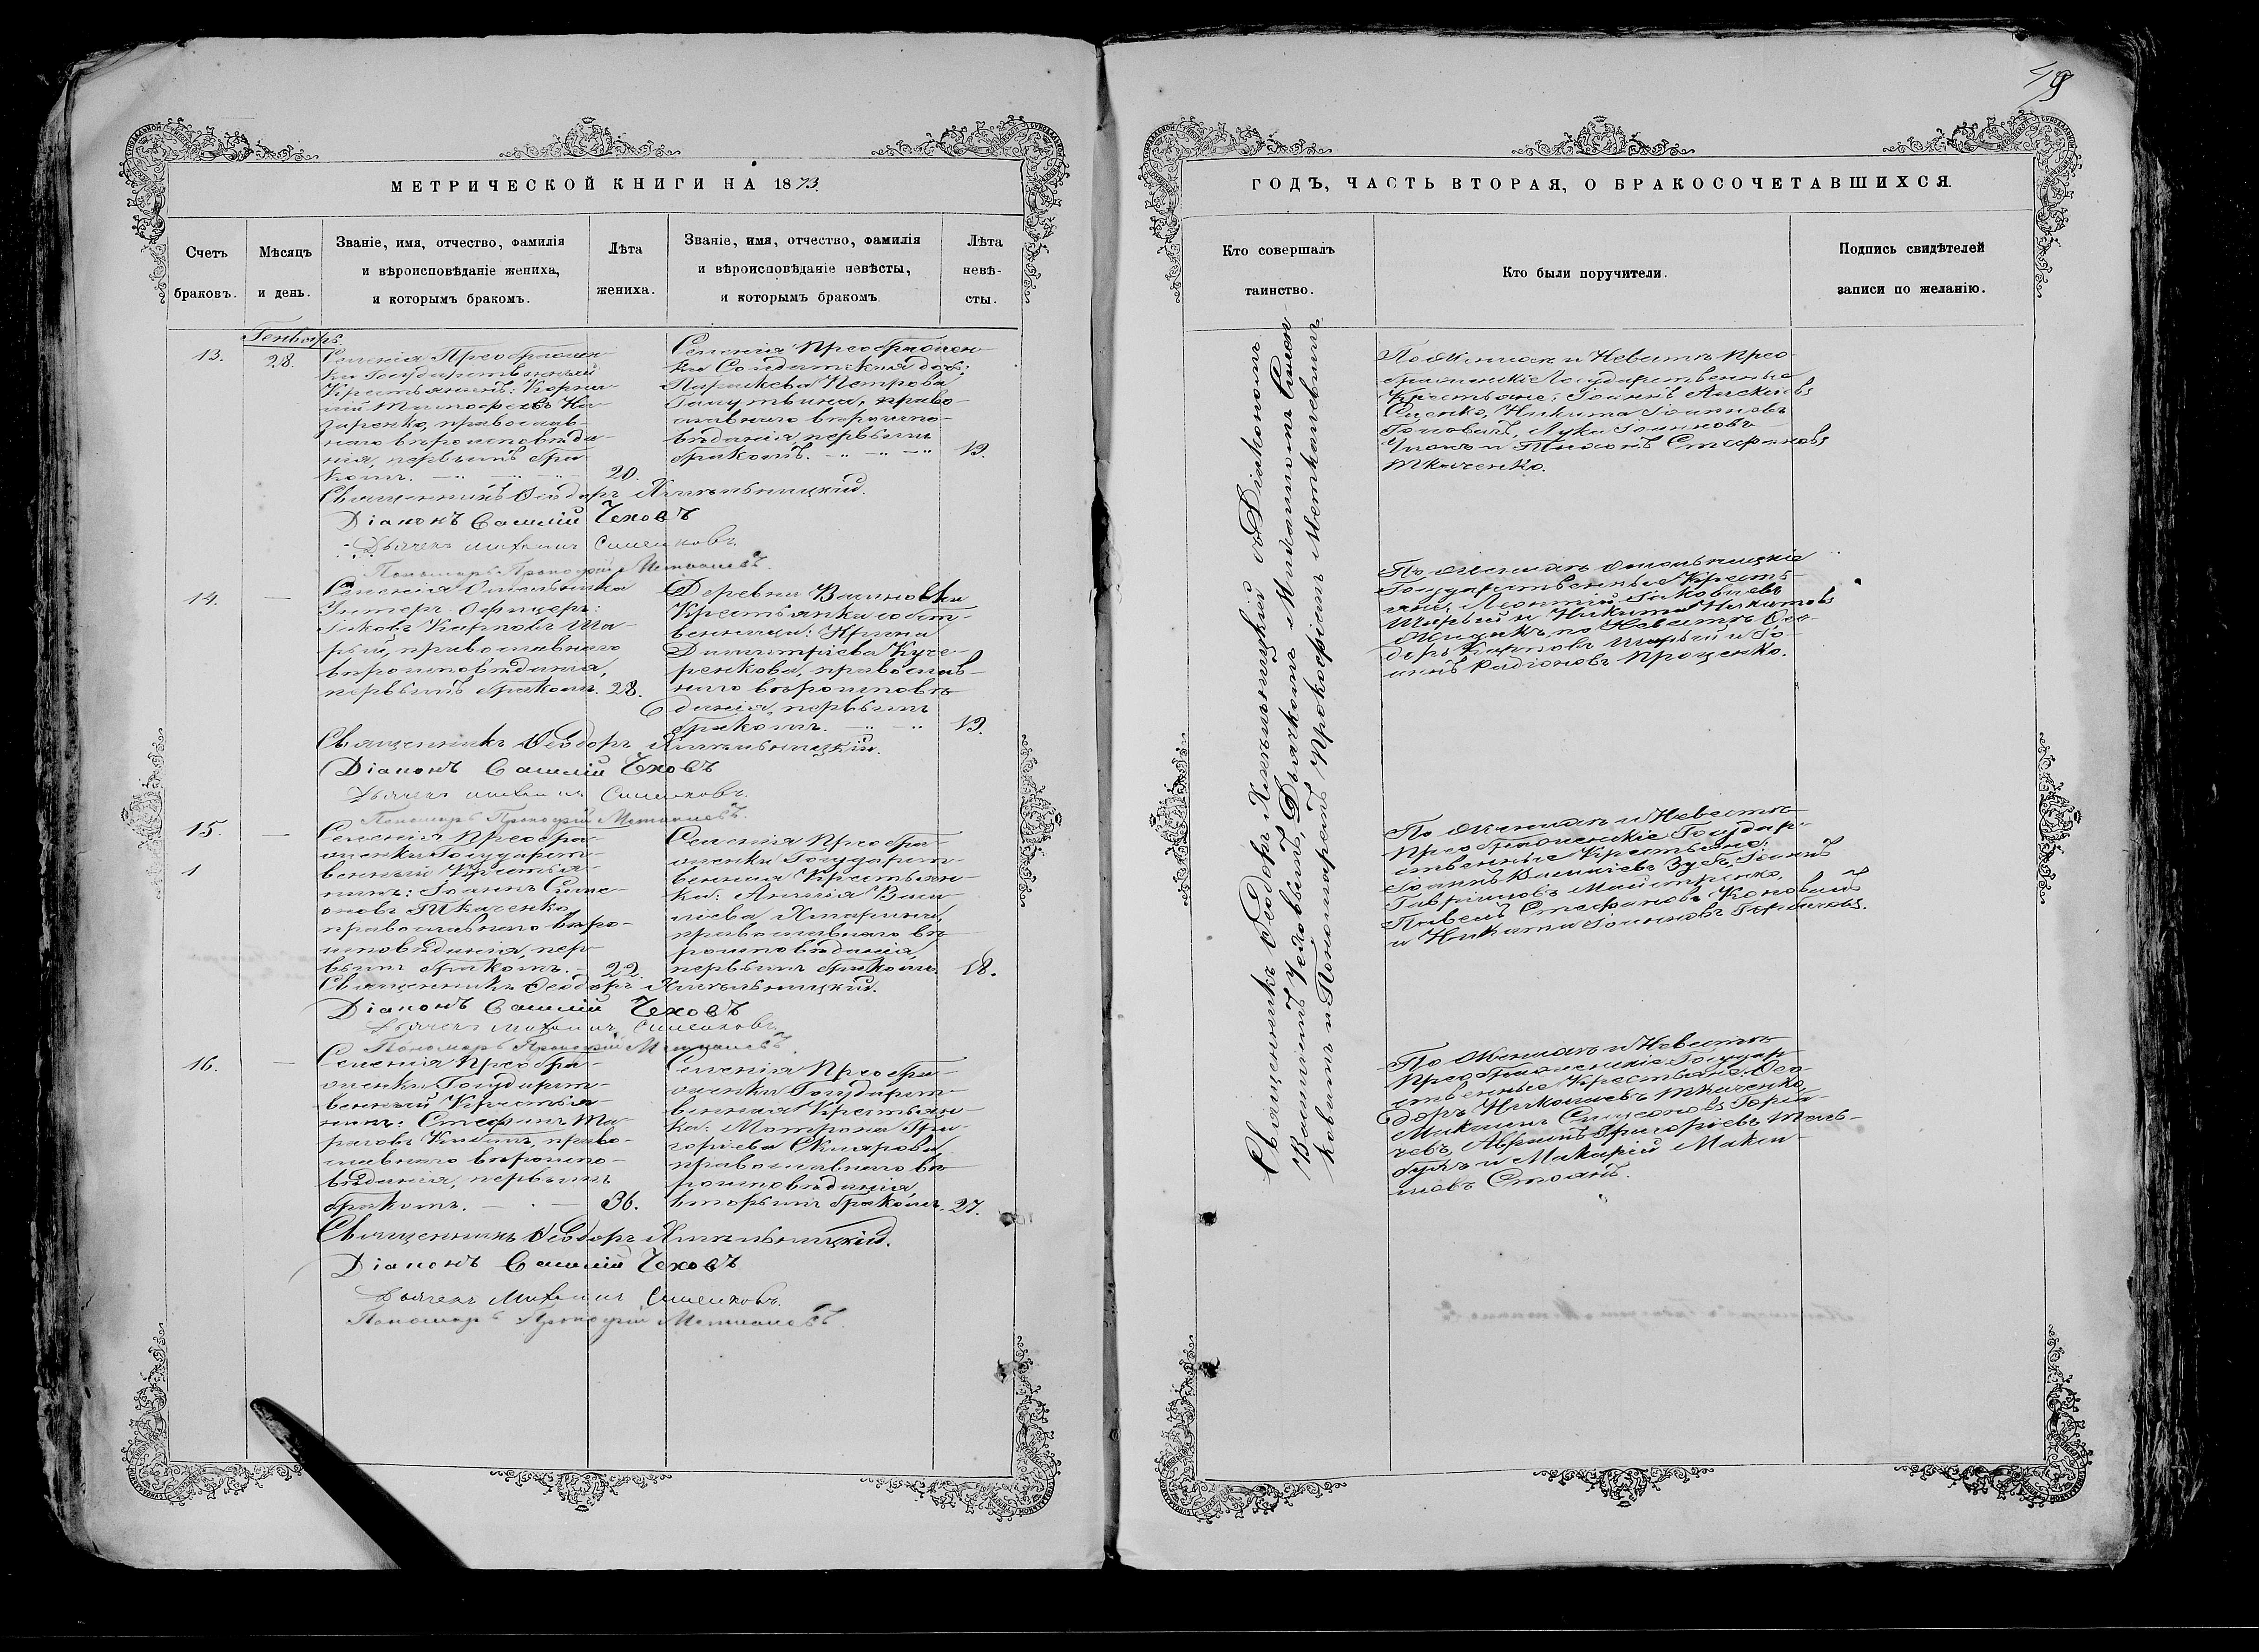 МЕТРИЧЕСКОЙ КНИГИ НА 1873.
Счетъ браковъ.
Мѣсяцъ и день.
Званіе, имя, отчество, фамилія
и вѣроисповѣданіе жениха,
и которымъ бракомъ.
Лѣта жениха.
Званіе, имя, отчество, фамилія
и вѣроисповѣданіе невѣсты,
и которымъ бракомъ
Лѣта невѣ-
сты.
Генварь.
13.
28.
Селенія Преображен
ки Государственный
Крестьянинъ: Корни-
лій Тимофеевъ На-
заренко, православ-
наго вѣроисповѣда-
нія, первымъ бра
комъ.
20.
Селенія Преображен
ки Солдатская доч:
Параскева Петрова
православнаго вѣроиспо-
вѣданія, первымъ
бракомъ.
19.
Священникъ Ѳеодоръ Хмѣльницкій.
Діаконъ Василій Чеховъ
Дьячекъ Михаилъ Симоновъ.
Пономарь Прокофій
14.
—
Селенія Омельника
Унтеръ-Офицеръ:
Іаковъ Карповъ Ша-
рый, православнаго
вѣроисповѣданія,
первымъ бракомъ.
28.
Деревни
Крестьянка собст-
венница: Ирина
Димитріева Куче-
ренкова, православ-
наго вѣроисповѣ
данія, первымъ
бракомъ.
19.
Священникъ Ѳеодоръ Хмѣльницкій.
Діаконъ Василій Чеховъ
Дьячекъ Михаилъ Симоновъ.
Пономарь Прокофій
15.
—
1
Селенія Преобра-
женки Государст-
венный Крестья-
нинъ: Іоаннъ Симе-
оновъ Ткаченко,
православнаго вѣро-
исповѣданія, пер
вымъ бракомъ.
22.
Селенія Преобра-
женки Государст-
венная Крестьян-
ка: Васи
ліева
православнаго вѣ
роисповѣданія,
первымъ бракомъ.
18.
Священникъ Ѳеодоръ Хмѣльницкій.
Діаконъ Василій Чеховъ
Дьячекъ Михаилъ Симоновъ.
Пономарь Прокофій
16.
—
Селенія Преобра-
женки Государст-
венный Крестья-
нинъ: Стефанъ Та-
расовъ право-
славнаго вѣроиспо-
вѣданія, первымъ
бракомъ.
36.
Селенія Преобра-
женки Государст-
венная Крестьян-
ка: Матрона Гри-
горіева Склярова,
православнаго вѣ
роисповѣданія,
вторымъ бракомъ.
27.
Священникъ Ѳеодоръ Хмѣльницкій.
Діаконъ Василій Чеховъ
Дьячекъ Михаилъ Симоновъ.
Пономарь Прокофій
ГОДЪ, ЧАСТЬ ВТОРАЯ, О БРАКОСОЧЕТАВШИХСЯ.
Кто совершалъ
таинство.
Кто были поручители.
Подпись свидѣтелей
записи по желанію.
Священникъ Ѳеодоръ Хмѣльницкій съ Діакономъ
Василіемъ Чеховымъ, Дьячкомъ Михаиломъ Симон-
овымъ и Пономаремъ Прокофіемъ
По Женихѣ и Невѣстѣ Прео-
браженскіе Государственные
Крестьяне, Іоаннъ Алексіевъ
Никита Іоанновъ
Лука Іоанновъ
и Стефановъ
Ткаченко.
По Женихѣ Омельницкіе
Государственные Кресть-
яне, Леонтій Іаковлевъ
Шарый и Никита Никитовъ
по Невѣстѣ Ѳео-
доръ Карповъ Шарый и Іо-
аннъ Радіоновъ Проценко.
По Женихѣ и Невѣстѣ
Преображенскіе Государ-
ственные Крестьяне:
Іоаннъ Василіевъ Зубъ, Іоаннъ
Гавріиловъ Майстренко,
Павелъ Стефановъ Коновалъ
и Никита Іоанновъ
По Женихѣ и Невѣстѣ
Преображенскіе Государ
ственные Крестьяне: Ѳео-
доръ Николаевъ Ткаченко,
Михаилъ Симеоновъ
Григоріевъ
и Макарій Макси-
мовъ